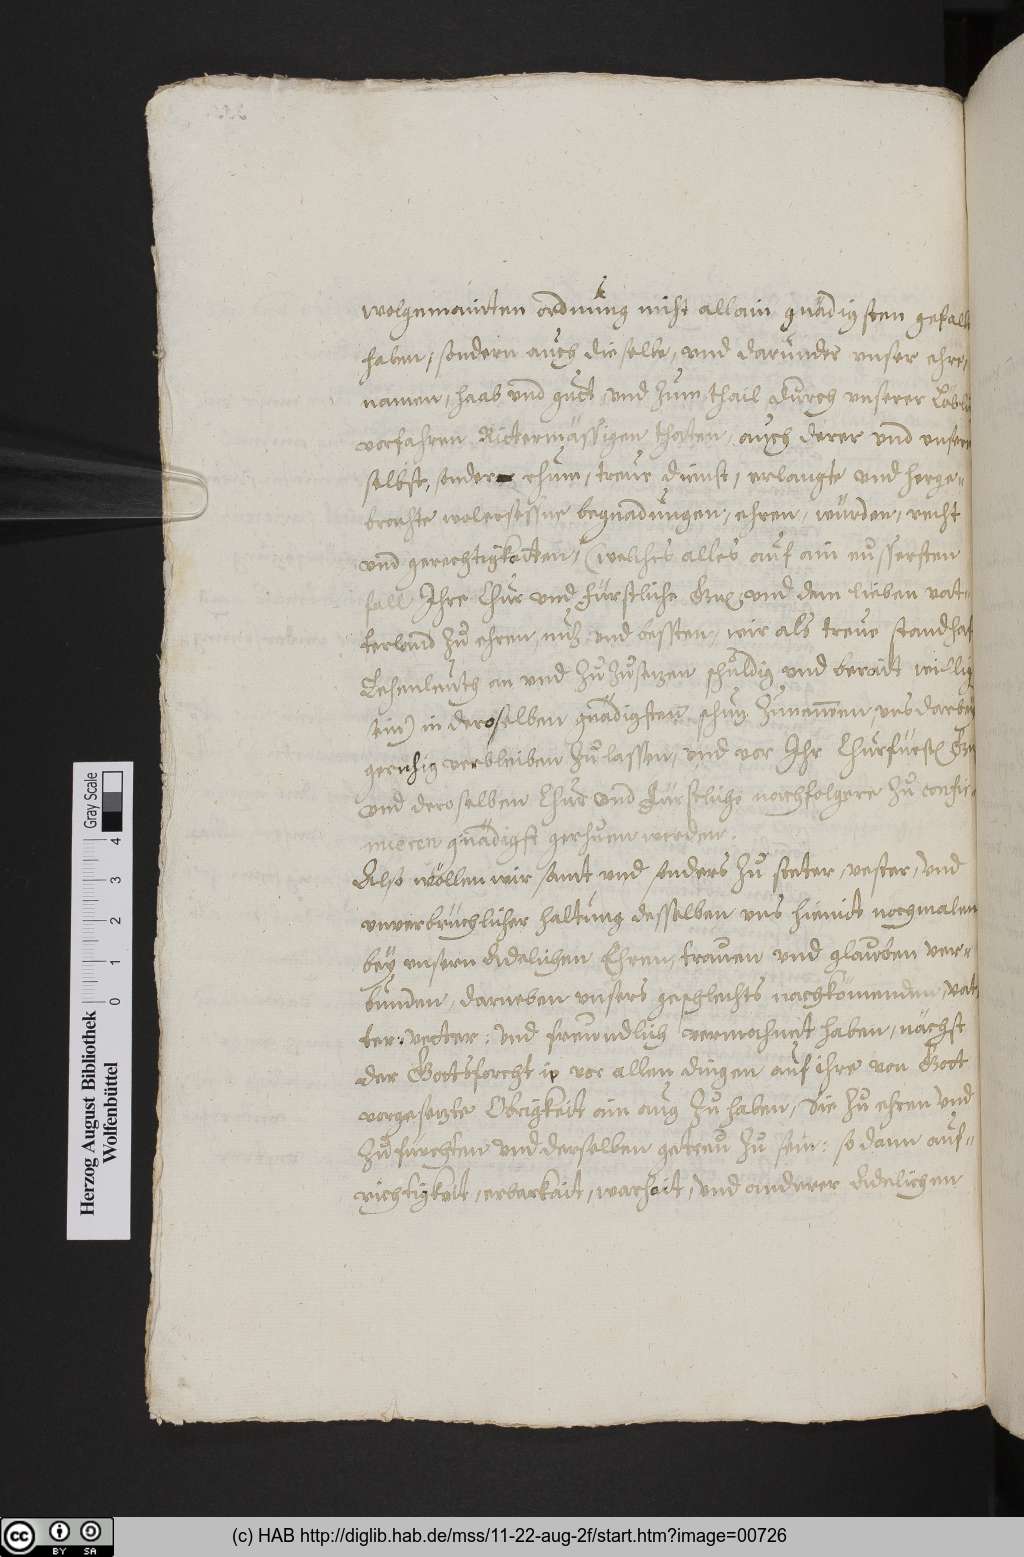 wolgemainten ordnung nicht allain gnädigsten gefall
haben, sondern auch die selbe, und darunder unser ehre,
namen, haab und gut, und zum thail durch unserer Löbli
vorfahren Rittermässigen thaten, auch derer und unsere
selbst, sonder thüm, treue dienst, erlangte und herge-
brachte wolersessne begnadungen, ehren, würden, recht
und gerechtigkeiten, (welches alles auf ain eusserssten
fall Ihre Chur und Fürstliche Gn. und dem lieben vat-
terland zu ehren, nuz und bessten, wir als treue standhaf
Lehenleuth an und zu zusezen schuldig und berait willig
sein) in deroselben gnädigsten schuz zunemmen, uns darbey
geruhig verbleiben zu lassen, und vor Ihr Churfürstl Gn
und deroselben Chur und Fürstliche nachfolgere zu confir-
mieren gnädigst geruhen werden.
Also wöllen wir samt und sonders zu steter, vester, und
unverbrüchlicher haltung desselben uns hiemit nochmalen
bey unsern Adelichen Ehren, trauen und glauben ver-
bunden, darneben unsers geschlechts nachkomenden, vat
ter: vetter: und freundlich vermahnet haben, nächst
der Gottsforcht ie vor allen dingen auf ihre von Gott
vorgesetzte Obrigkeit ain aug zu haben, die zu ehren und
zu furchten und derselben getreu zu sein: so dann auf-
richtigkeit, erbarkait, warheit, und anderer Adelichen
Herzog August Bibliothek
Wolfenbüttel
Gray Scale
0 1 2 3 4
(c) HAB http://diglib.hab.de/mss/11-22-aug-2f/start.htm?image=00726
cc BY SA